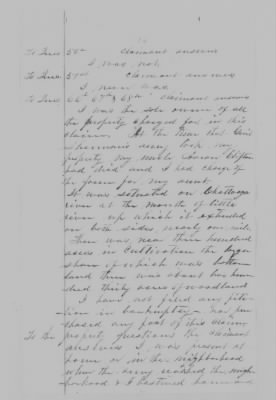 To Inter 50th claimant answers
I was not
To Inter 51st claimant answers
I never was
To Inter 66th 67th & 68th claimant answers
I was the sole owner of all
the property charged for in this
claim. At the time that Genl
Sherman's army took my
property my uncle Aaron Clifton
had died and I had charge of
the farm for my aunt.
It was situated on Chattooga
river at the mouth of little
river up which it extended
on both sides nearly one mile.
There was near three hundred
acres in cultivation the larger
share of which was bottom
land there was about two hun-
dred thirty acres of woodland
I have not filed any peti-
tion in bankruptcy nor pur-
chased any part of this
To the property questions the claimant
answers I was present at
home or in the neighborhood
when the army reached the neigh-
borhood & I hastened